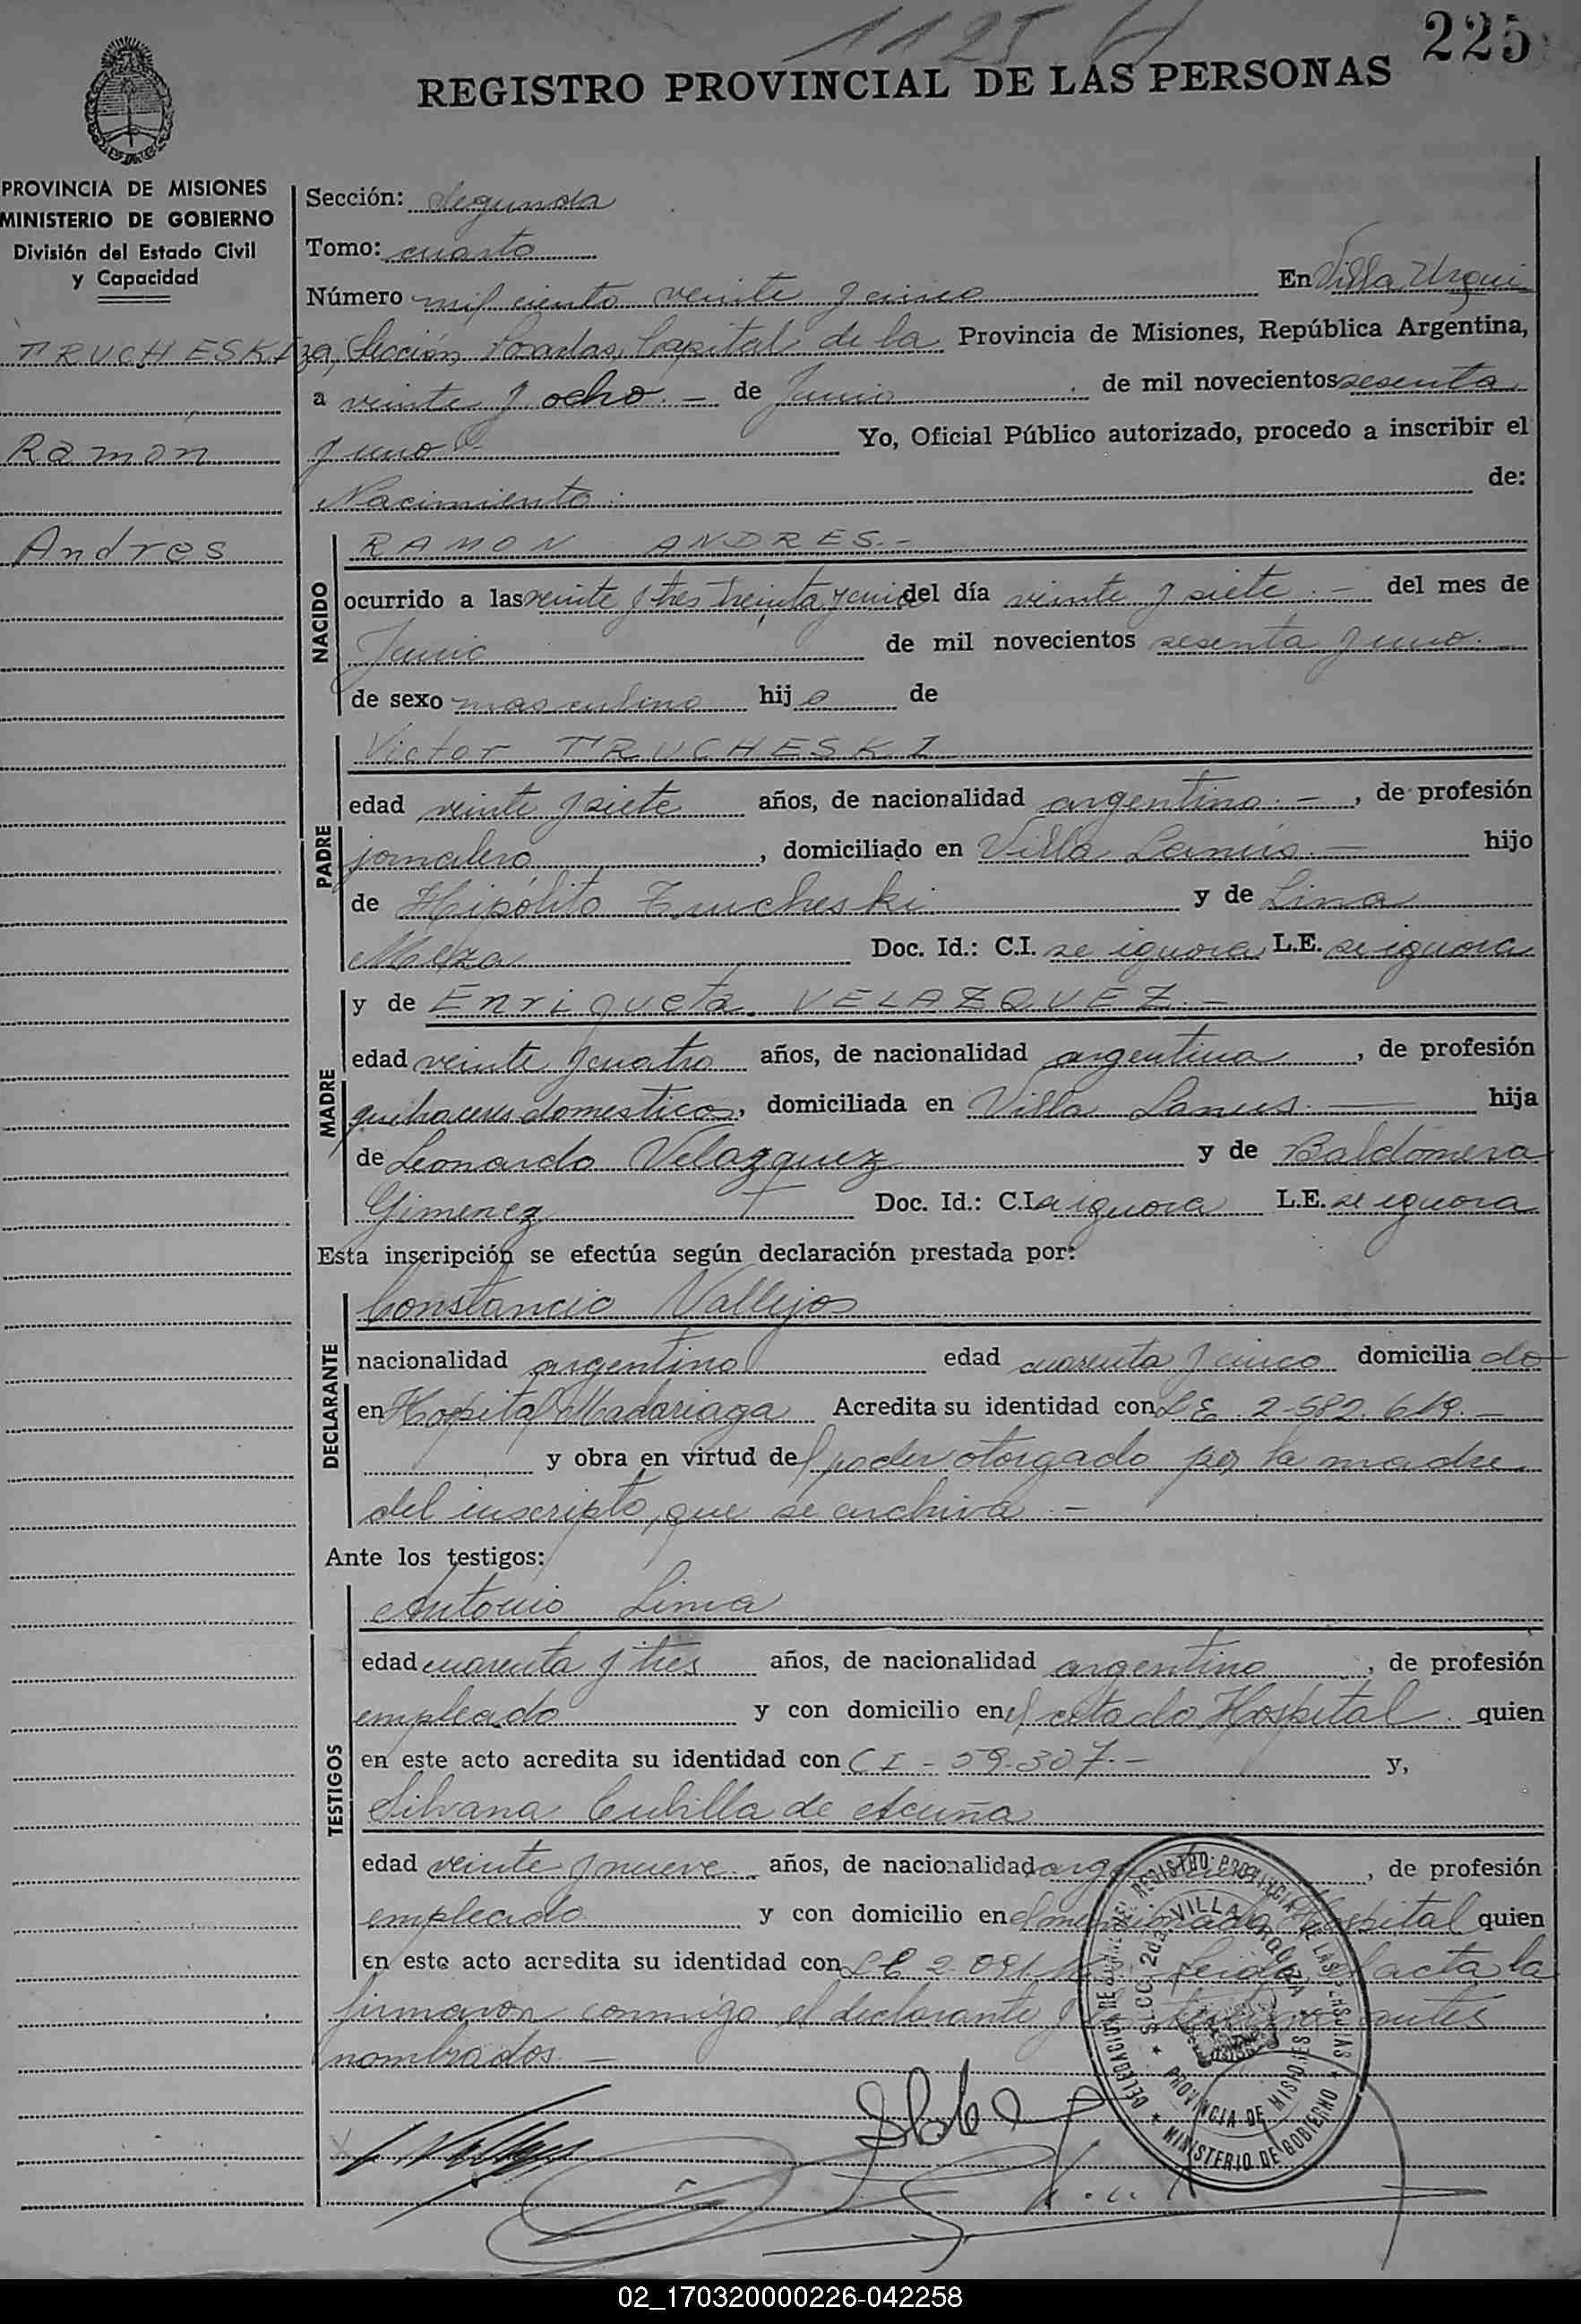 1125
225
REGISTRO PROVINCIAL DE LAS PERSONAS
PROVINCIA DE MISIONES
MINISTERIO DE GOBIERNO
División del Estado Civil
y Capacidad
TRUCHESKI
Ramon
Andres
Sección: Segunda
Tomo: cuarto
Número mil ciento veinte y cinco En Villa Urqui
za, Sección, Posadas, Capital de la Provincia de Misiones, República Argentina,
a veinte y ocho.- de Junio de mil novecientos sesenta
y uno.- Yo, Oficial Público autorizado, procedo a inscribir el
Nacimiento de:
NACIDO
RAMON ANDRES.-
ocurrido a las veinte y tres treinta y cinco del día veinte y siete.- del mes de
Junio de mil novecientos sesenta y uno.-
de sexo masculino hijo de
PADRE
Victor TRUCHESKI
edad veinte y siete años, de nacionalidad argentino.-, de profesión
jornalero, domiciliado en Villa Lanús.- hijo
de Hipólito Trucheski y de Lina
Doc. Id.: C.I. se ignora L.E. se ignora
MADRE
y de Enriqueta VELAZQUEZ.-
edad veinte y cuatro años, de nacionalidad argentina, de profesión
quehaceres domesticos, domiciliada en Villa Lanus.- hija
de Leonardo Velazquez y de Baldomera
Gimenez Doc. Id.: C.I. se ignora L.E. se ignora
Esta inscripción se efectúa según declaración prestada por:
DECLARANTE
Constancio Vallejos
nacionalidad argentino edad cuarenta y cinco domiciliado
en Hospital Madariaga Acredita su identidad con L E 2-582.619.-
y obra en virtud del poder otorgado por la madre
del inscripto, que se archiva.-
Ante los testigos:
TESTIGOS
Antonio Lima
edad cuarenta y tres años, de nacionalidad argentino, de profesión
empleado y con domicilio en el citado Hospital. quien
en este acto acredita su identidad con C I - 59.307.- y,
Silvana Cubilla de Acuña
edad veinte y nueve.- años, de nacionalidad , de profesión
empleado y con domicilio en el mencionado Hospital quien
en este acto acredita su identidad con L E 2.091 Leída el acta la
firmaron conmigo el declarante y los testigos antes
nombrados.-
REGISTRO PROVINCIAL DE LAS PERSONAS
SECC. 2da. VILLA URQUIZA
PROVINCIA DE MISIONES
MINISTERIO DE GOBIERNO
02_170320000226-042258